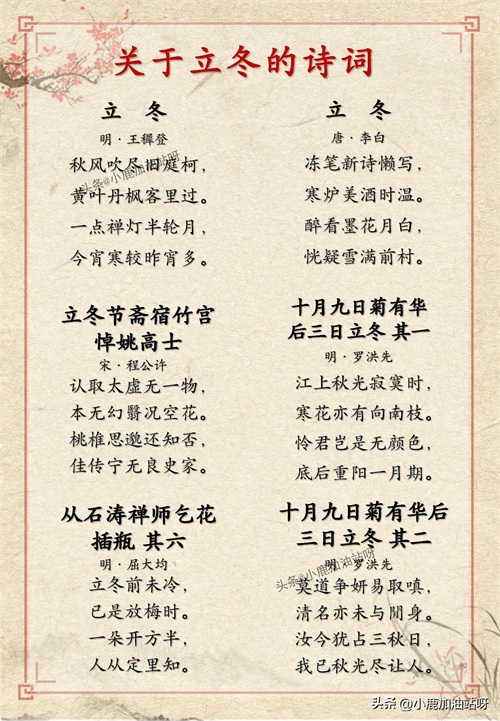 关于立冬的诗词
立 冬
明·王穉登
秋风吹尽旧庭柯，
黄叶丹枫客里过。
一点禅灯半轮月，
今宵寒较昨宵多。
立 冬
唐·李白
冻笔新诗懒写，
寒炉美酒时温。
醉看墨花月白，
恍疑雪满前村。
立冬节斋宿竹宫
悼姚高士
宋·程公许
认取太虚无一物，
本无幻翳况空花。
桃椎思邈还知否，
佳传宁无良史家。
十月九日菊有华
后三日立冬 其一
明·罗洪先
江上秋光寂寞时，
寒花亦有向南枝。
怜君岂是无颜色，
底后重阳一月期。
从石涛禅师乞花
插瓶 其六
明·屈大均
立冬前未冷，
已是放梅时。
一朵开方半，
人从定里知。
十月九日菊有华后
三日立冬 其二
明·罗洪先
莫道争妍易取嗔，
清名亦未与閒身。
汝今犹占三秋日，
我已秋光尽让人。
头条@小鹿加油站呀
头条@小鹿加油站呀
头条@小鹿加油站呀